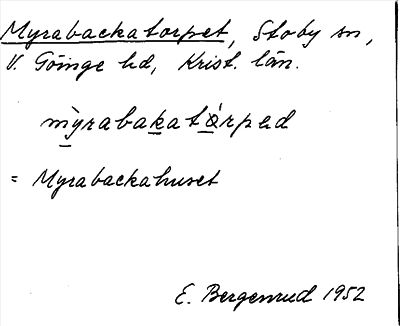 Myrabackatorpet, Stoby sn,
V. Göinge hd, Krist. län.
m̀yrabakatȯ́rpəd
= Myrabackahuset
E. Bergenrud 1952